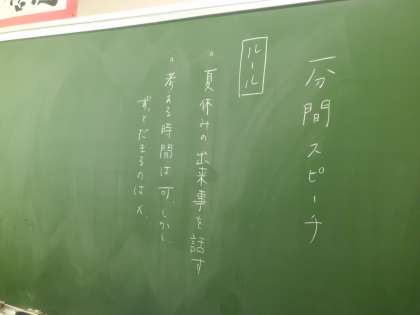 一分間スピーチ
ルール
。夏休みの出来事を話す
。考える時間は可。しかし、
ずっとだまるのは×。